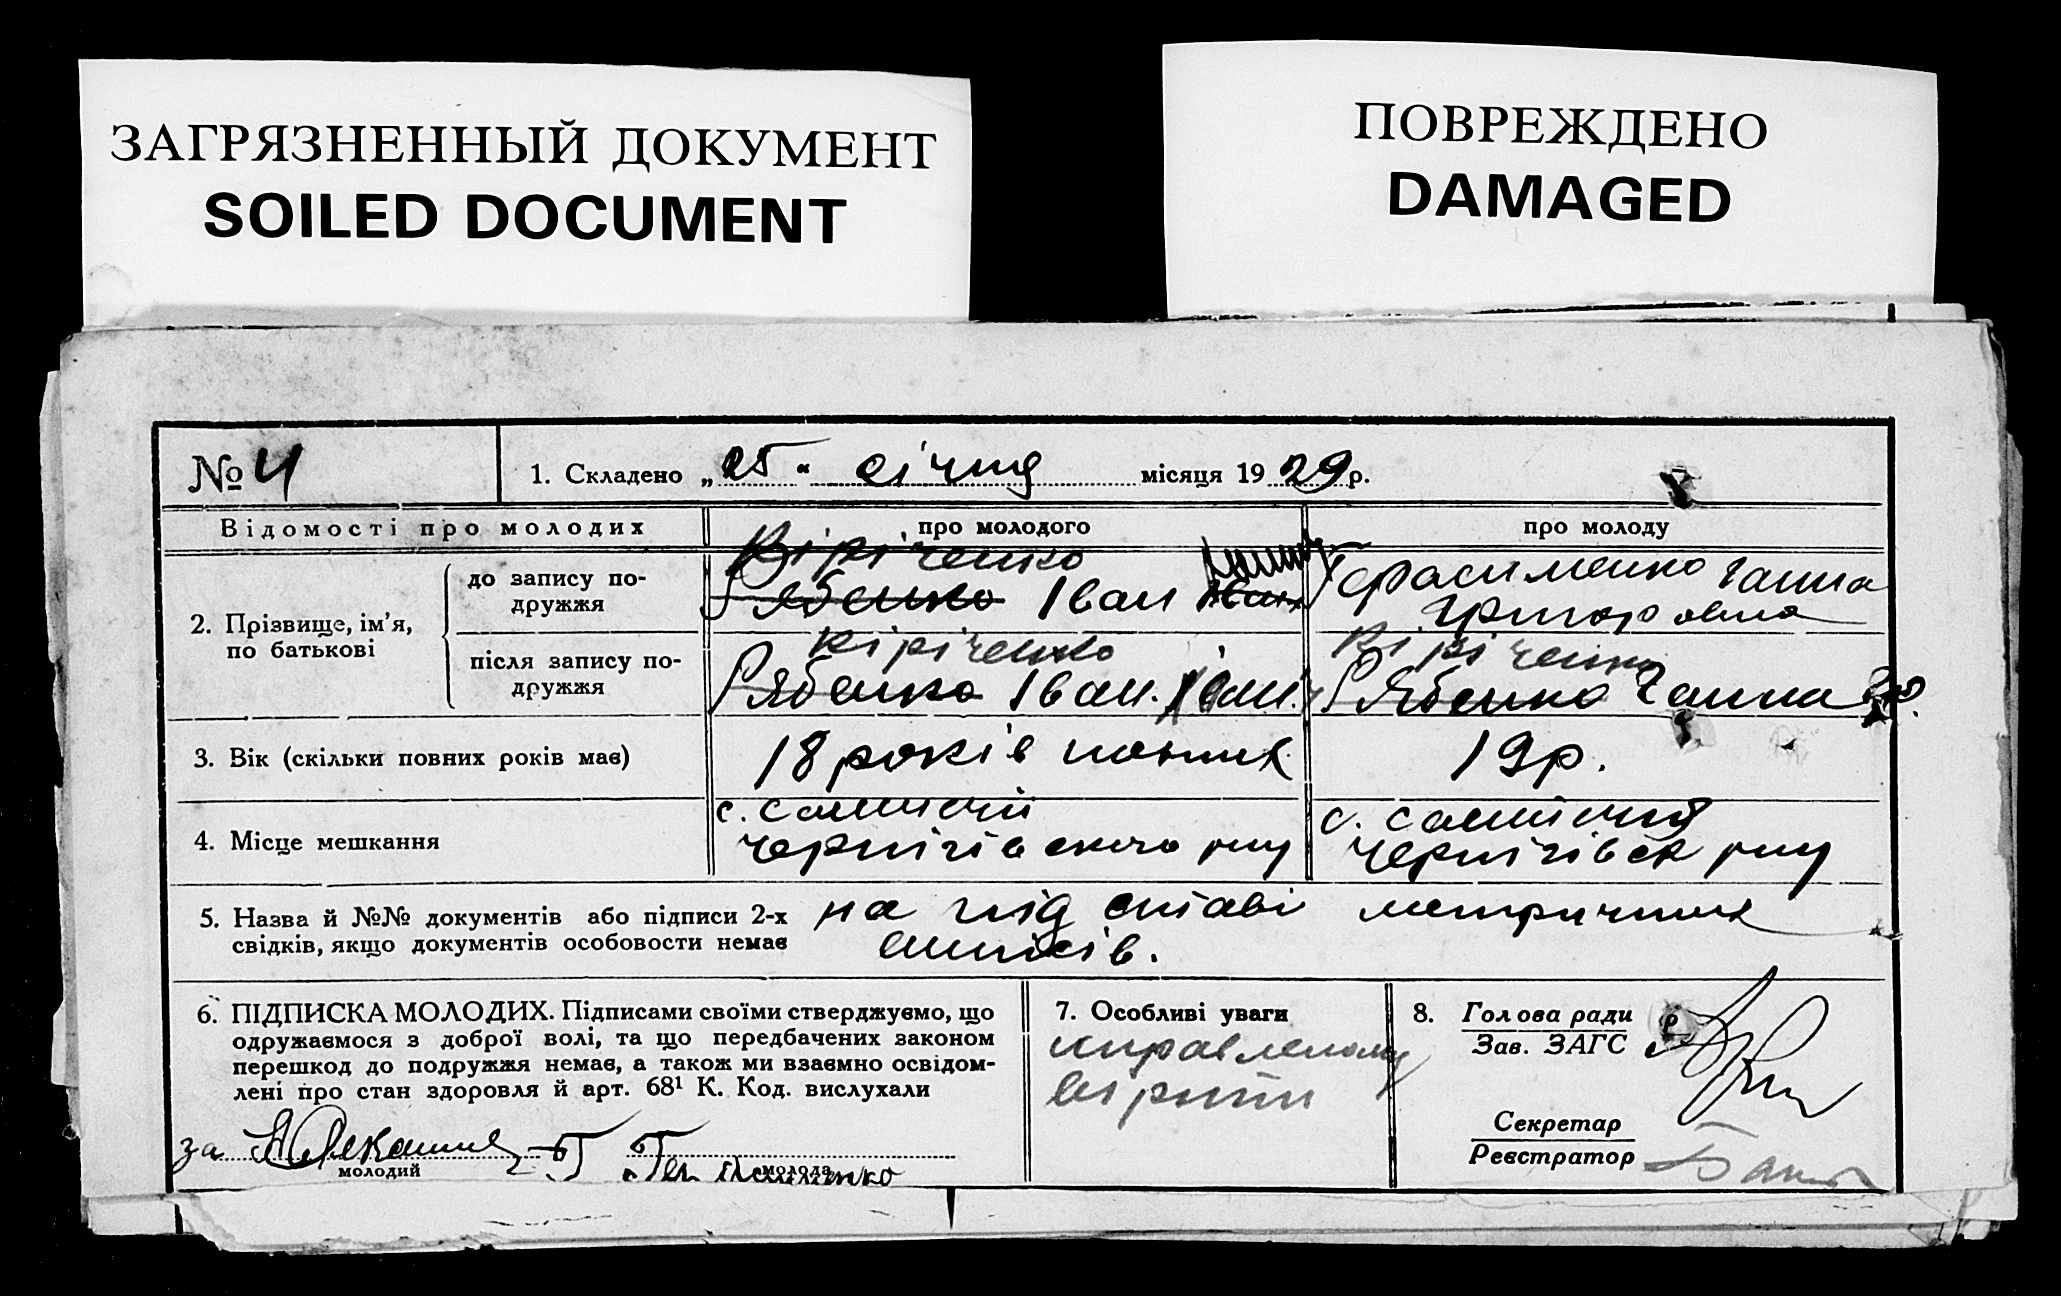 ЗАГРЯЗНЕННЫЙ ДОКУМЕНТ
SOILED DOCUMENT
ПОВРЕЖДЕНО
DAMAGED
№ 4
1. Складено „ 25 “ січня місяця 19 29 р.
Відомості про молодих
про молодого
про молоду
2. Прізвище, ім’я,
по батькові
до запису по-
дружжя
Кіріченко
Рябенко Іван Іван
Герасименко Ганна
Григоровна
після запису по-
дружжя
Кіріченко
Рябенко Іван. Іван.
Кіріченко
Рябенко Ганна
3. Вік (скільки повних років має)
18 років повних
19 р.
4. Місце мешкання
с.
Чернігівского р-ну
с.
Чернігівск р-ну
5. Назва й №№ документів або підписи 2-х
свідків, якщо документів особовости немає
на підставі метричних
виписів.
6. ПІДПИСКА МОЛОДИХ. Підписами своїми стверджуємо, що
одружаємося з доброї волі, та що передбачених законом
перешкод до подружжя немає, а також ми взаємно освідом-
лені про стан здоровля й арт. 68¹ К. Код. вислухали
за
молодий
молода
7. Особливі уваги
исправленому
вірити
8. Голова ради
Зав. ЗАГС
Секретар
Реєстратор